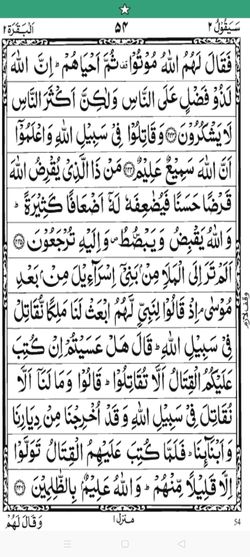 سَيَقُوْلُ ٢ ٥٣ اَلْبَقَرَة ٢
فَقَالَ لَهُمُ اللّٰهُ مُوْتُوْا ثُمَّ اَحْيَاهُمْ ؕ اِنَّ اللّٰهَ
لَذُوْ فَضْلٍ عَلَى النَّاسِ وَلٰكِنَّ اَكْثَرَ النَّاسِ
لَا يَشْكُرُوْنَ ﴿٢٤٣﴾ وَقَاتِلُوْا فِىْ سَبِيْلِ اللّٰهِ وَاعْلَمُوْٓا
اَنَّ اللّٰهَ سَمِيْعٌ عَلِيْمٌ ﴿٢٤٤﴾ مَنْ ذَا الَّذِىْ يُقْرِضُ اللّٰهَ
قَرْضًا حَسَنًا فَيُضٰعِفَهٗ لَهٗٓ اَضْعَافًا كَثِيْرَةً ؕ
وَاللّٰهُ يَقْبِضُ وَيَبْصُۜطُ ۪ وَاِلَيْهِ تُرْجَعُوْنَ ﴿٢٤٥﴾
اَلَمْ تَرَ اِلَى الْمَلَاِ مِنْۢ بَنِىْٓ اِسْرَآءِيْلَ مِنْۢ بَعْدِ
مُوْسٰى ۘ اِذْ قَالُوْا لِنَبِىٍّ لَّهُمُ ابْعَثْ لَنَا مَلِكًا نُّقَاتِلْ
فِىْ سَبِيْلِ اللّٰهِ ؕ قَالَ هَلْ عَسَيْتُمْ اِنْ كُتِبَ
عَلَيْكُمُ الْقِتَالُ اَلَّا تُقَاتِلُوْا ؕ قَالُوْا وَمَا لَنَآ اَلَّا
نُقَاتِلَ فِىْ سَبِيْلِ اللّٰهِ وَقَدْ اُخْرِجْنَا مِنْ دِيَارِنَا
وَاَبْنَآئِنَا ؕ فَلَمَّا كُتِبَ عَلَيْهِمُ الْقِتَالُ تَوَلَّوْا
اِلَّا قَلِيْلًا مِّنْهُمْ ؕ وَاللّٰهُ عَلِيْمٌۢ بِالظّٰلِمِيْنَ ﴿٢٤٦﴾
وَقَالَ لَهُمْ منزل ١ 54